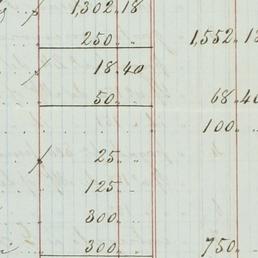 1,302.18
250. " 1,552.18
18.40
50. " 68.40
100. "
25. "
125 "
300. "
300. " 750. "